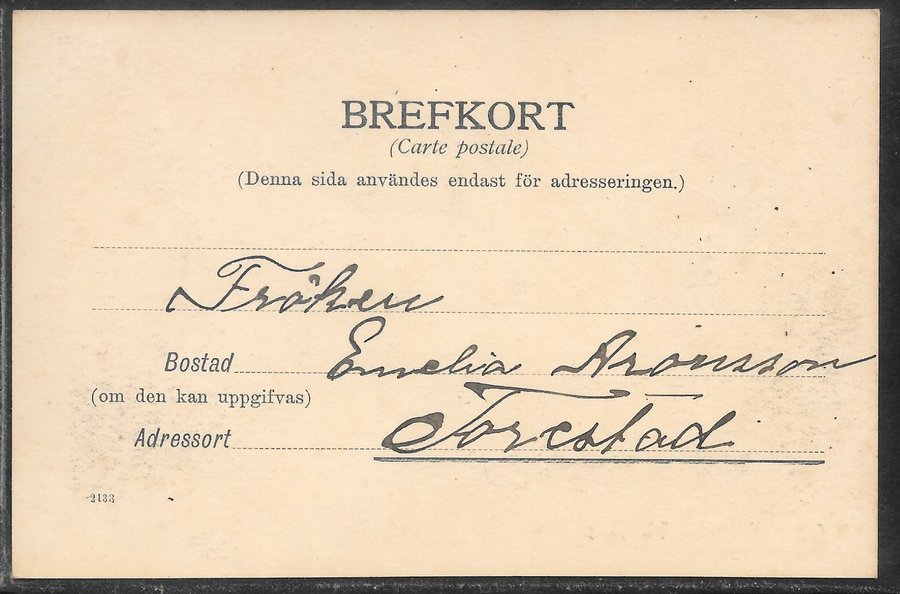 BREFKORT
(Carte postale)
(Denna sida användes endast för adresseringen.)
Fröken
Bostad Emelia Aronsson
(om den kan uppgifvas)
Adressort Torestad
2133